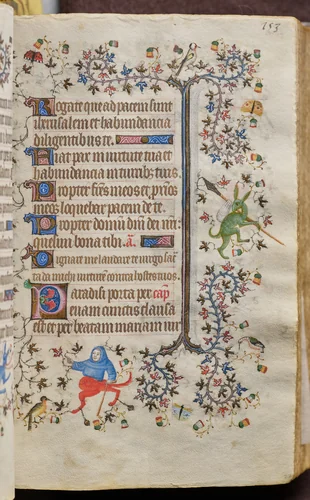 153
Rogate que ad pacem sunt
iherusalem et habundancia
diligentibus te.
Fiat pax in uirtute tua et
habundancia in turribus tuis.
Propter frēs meos et proximos
meos loquebar pacem de te.
Propter domum dn̄i dei nr̄i
quesiui bona tibi. a.
Dignare me laudare te uirgo sacra
ta da michi uirtutem contra hostes tuos.
Paradisi porta per cap̄
euam cunctis clausa
est et per beatam mariam uir